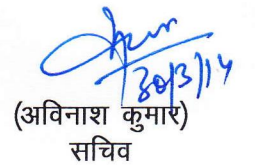 30/3/14
(अविनाश कुमार)
सचिव